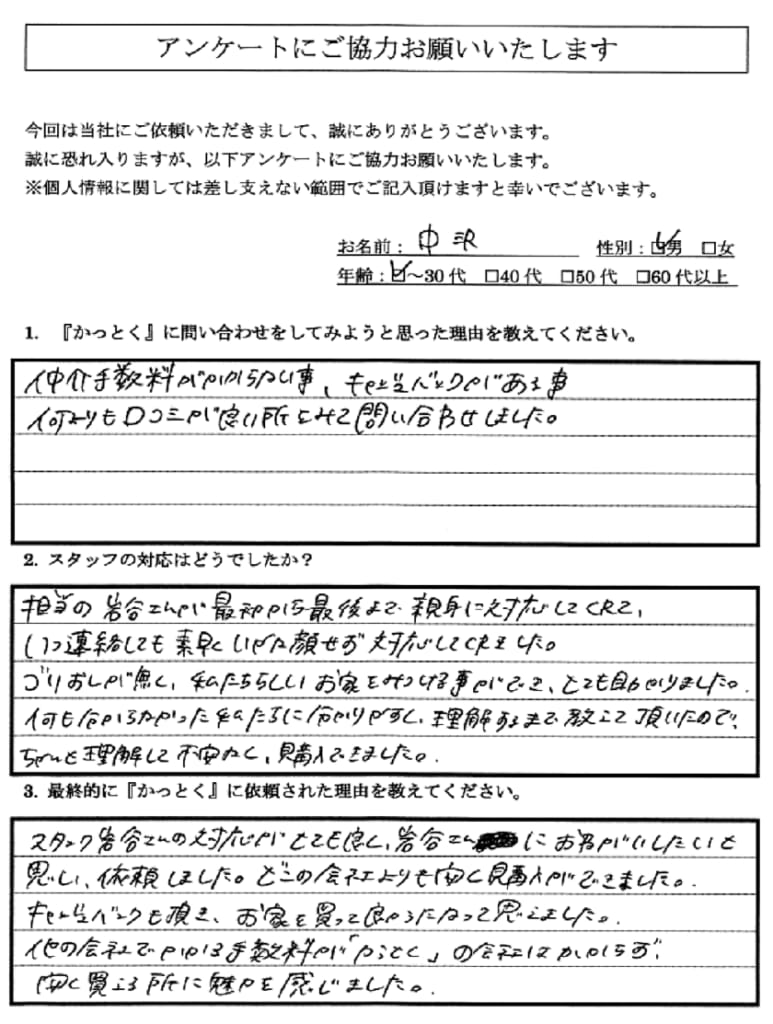 アンケートにご協力お願いいたします
今回は当社にご依頼いただきまして、誠にありがとうございます。
誠に恐れ入りますが、以下アンケートにご協力お願いいたします。
※個人情報に関しては差し支えない範囲でご記入頂けますと幸いでございます。
お名前：中沢 性別：☑男 □女
年齢：☑～30代 □40代 □50代 □60代以上
1. 『かっとく』に問い合わせをしてみようと思った理由を教えてください。
仲介手数料がかからない事、キャッシュバックがある事
何よりも口コミが良い所をみて問い合わせしました。
2. スタッフの対応はどうでしたか？
担当の岩谷さんが最初から最後まで親身に対応してくれて、
いつ連絡しても素早くいやな顔せず対応してくれました。
ゴリおしが無く、私たちらしいお家をみつける事ができ、とても助かりました。
何も分からなかった私たちに分かりやすく、理解するまで教えて頂いたので、
ちゃんと理解して不安なく、購入できました。
3. 最終的に『かっとく』に依頼された理由を教えてください。
スタッフ岩谷さんの対応がとても良く、岩谷さんにお願いしたいと
思い、依頼しました。どこの会社よりも安く購入ができました。
キャッシュバックも頂き、お家を買って良かったなって思えました。
他の会社でかかる手数料が「かっとく」の会社はかからず、
安く買える所に魅力を感じました。